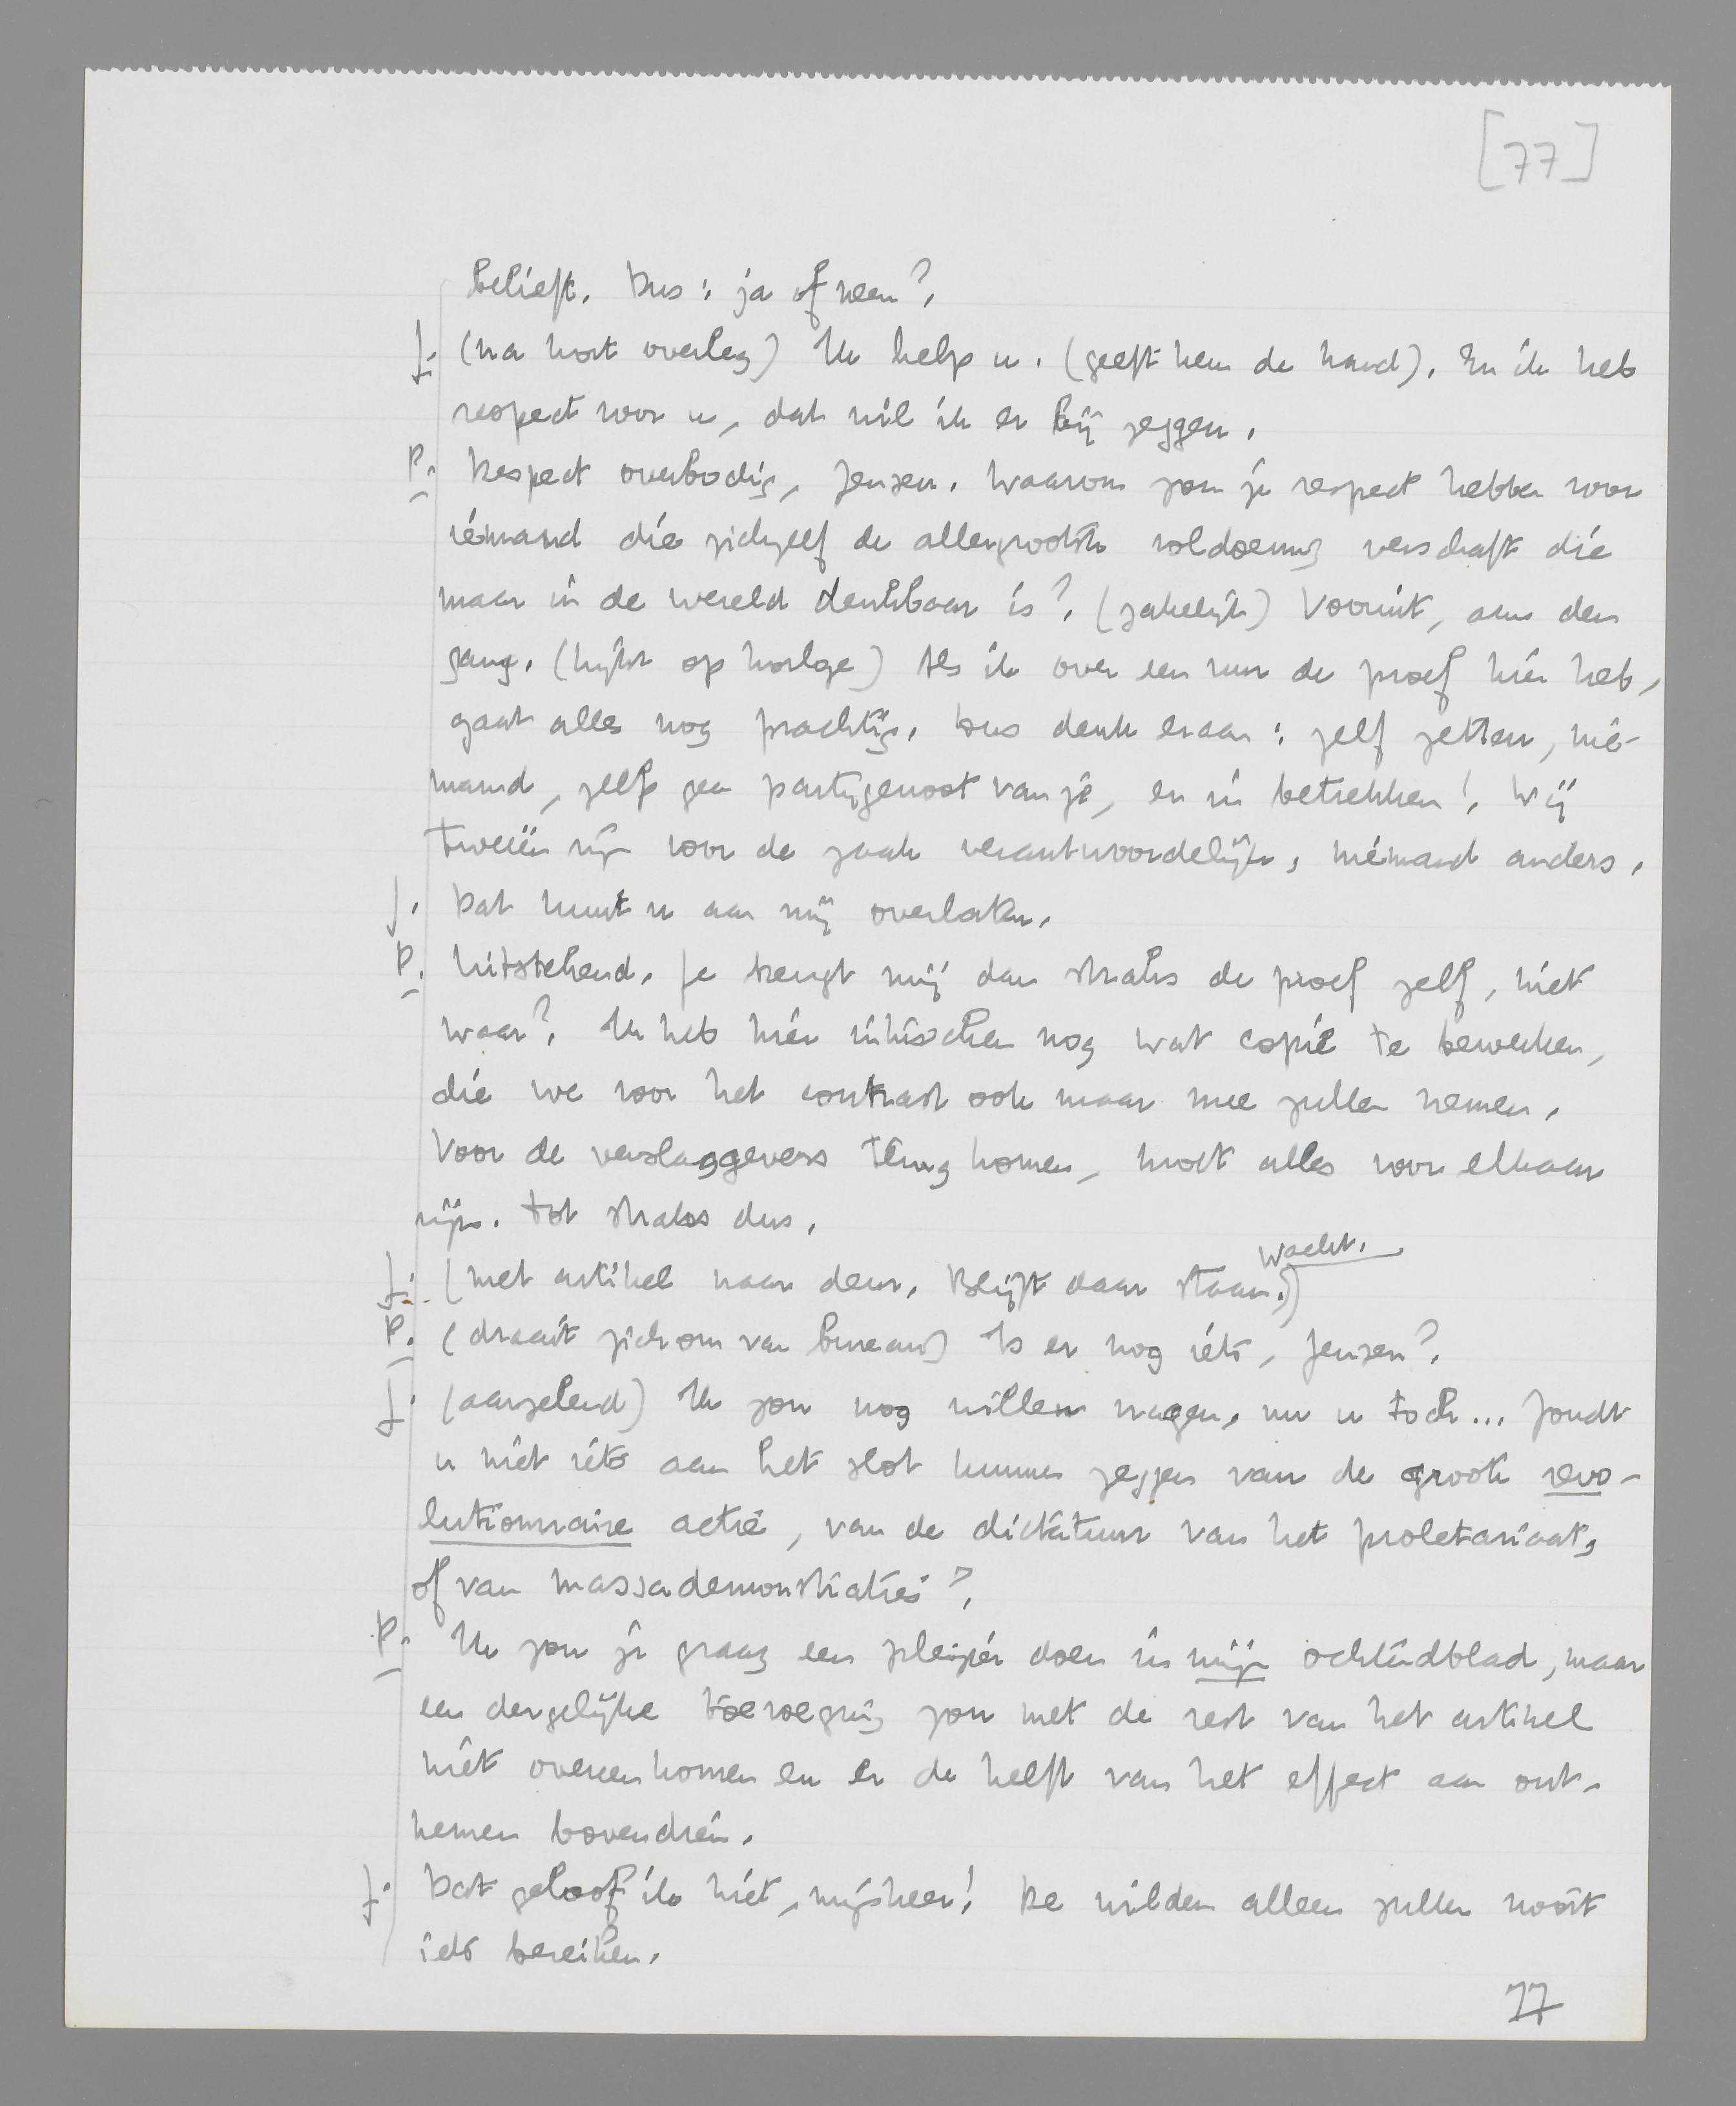 [77]
belieft. Dus: ja of neen?
J. (na kort overleg) Ik help u. (geeft hem de hand). En ik heb
respect voor u, dat wil ik er bij zeggen.
P. Respect overbodig, Jensen. Waarom zou je respect hebben voor
iemand die zichzelf de allergrootste voldoening verschaft die
maar in de wereld denkbaar is? (zakelijk) Vooruit, aan den
gang. (kijkt op horloge) Als ik over een uur de proef hier heb,
gaat alles nog prachtig. Dus denk eraan: zelf zetten, nie-
mand, zelfs geen partijgenoot van je, er in betrekken! Wij
tweeën zijn voor de zaak verantwoordelijk, niemand anders.
J. Dat kunt u aan mij overlaten.
P. Uitstekend. Je brengt mij dan straks de proef zelf, niet
waar? Ik heb hier intusschen nog wat copie te bewerken,
die we voor het contrast ook maar mee zullen nemen.
Voor de verslaggevers terug komen, moet alles voor elkaar
zijn. Tot straks dus.
J. (met artikel naar deur. Blijft daar staan. Wacht.)
P. (draait zich om van bureau) Is er nog iets, Jensen?
J. (aarzelend) Ik zou nog willen vragen, nu u toch... Zoudt
u niet iets aan het slot kunnen zeggen van de groote revo-
lutionnaire actie, van de dictatuur van het proletariaat,
of van massademonstraties?
P. Ik zou je graag een pleizier doen in mijn ochtendblad, maar
een dergelijke toevoeging zou met de rest van het artikel
niet overeenkomen en er de helft van het effect aan ont-
nemen bovendien.
J. Dat geloof ik niet, mijnheer! De wilden alleen zullen nooit
iets bereiken.
77